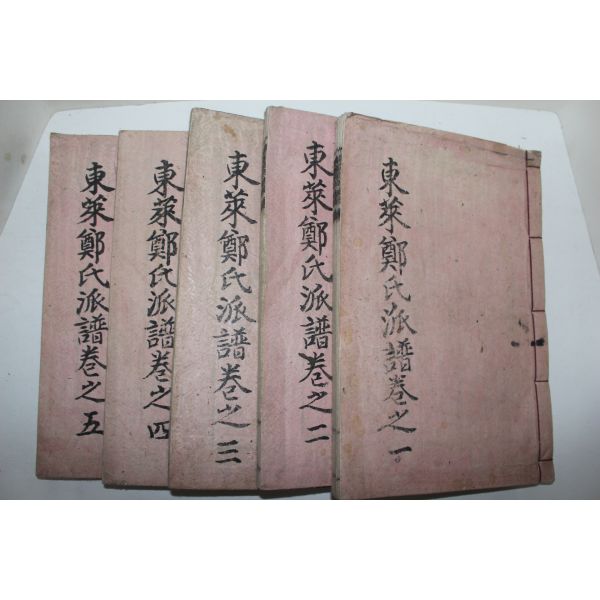 東萊鄭氏派譜卷之一
東萊鄭氏派譜卷之二
東萊鄭氏派譜卷之三
東萊鄭氏派譜卷之四
東萊鄭氏派譜卷之五